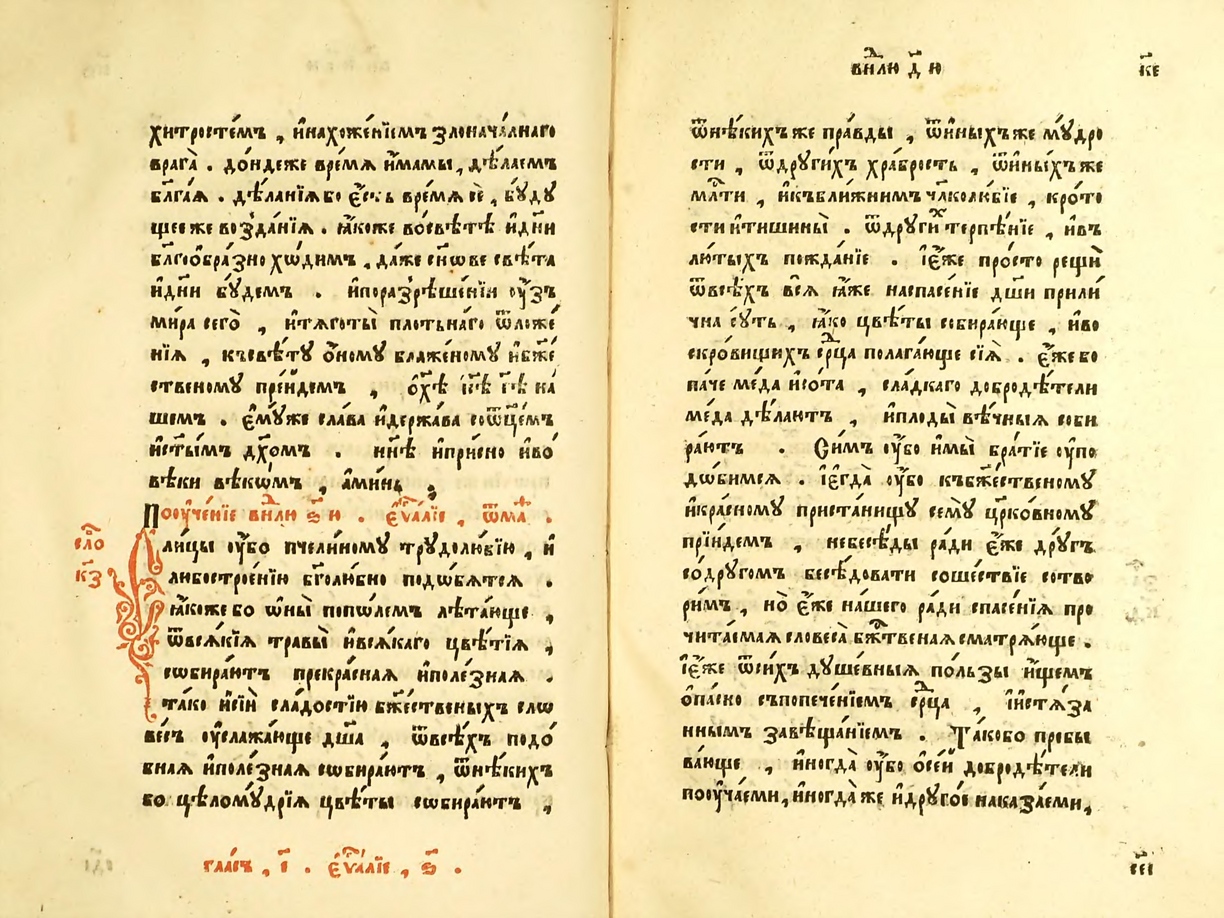 хи́тросте́мъ , и҆нахоже́нїемъ злонача́лнаго
врага̀ . до́ндеже вре́мѧ и҆́мамы , дѣ́лаемъ
бл҃га́ѧ . дѣ́ланїѧбо є҆́сть вре́мѧ сѐ , бꙋ́дꙋ
щееже возда́нїѧ . ꙗ҆́коже восвѣ́тѣ и҆дн҃и
бл҃гоѻбра́зно хѡ́димъ , да́же сн҃ѡве свѣ́та
и҆дн҃и бꙋ́демъ . и҆поразрѣше́нїи ᲂу҆́зъ
мира сего̀ , и҆тѧготы̀ пло́тьнаго ѿложе́
нїѧ , късвѣ́тꙋ ѻ҆́номꙋ блаже́номꙋ и҆бж҃е
ственомꙋ пре́йдемъ , ѻ҆хѣ̃ і҆с҃ѣ гд҃ѣ на́
шемъ . є҆мꙋ́же сла́ва и҆держа́ва соѿц҃е́мъ
и҆ст҃ы́мъ дх҃омъ . нн҃ѣ и҆при́сно и҆во́
вѣки вѣкѡ́мъ , а҆ми́нь ,
Поᲂуче́нїе внл҃ю ѕ҃ ю . є҆ѵⷢ҇а́лїе , ѿмаⷴ .
сло́
к҃з
лицы ᲂу҆́бо пчели́номꙋ трꙋдолю́бїю , и҆
любострое́нїю бг҃олю́бно подѡ́бѧтсѧ .
ꙗ҆́коже бо ѡ҆ны̀ попѡ́лемъ лѣта́юще ,
ѿвсѧ́кїѧ травы̀ и҆всѧ́каго цвѣ́тїѧ ,
сѡбира́ютъ прекра́снаѧ и҆поле́знаѧ .
та́ко и҆сїѝ сла́достїю бж҃е́ственыхъ слѡ
ве́съ ᲂу҆слажа́юще дш҃а , ѿвсѣ́хъ подо́
бнаѧ и҆поле́знаѧ сѡбира́ютъ , ѿнѣ́кихъ
бо цѣломꙋ́дрїѧ цвѣ́ты сѡбира́ютъ ,
гла́съ , є҃ . є҆ѵⷢ҇а́лїе , ѕ҃ .
внл҃ю д҃ ю
к҃е
ѿнѣ́кихъже пра́вды , ѿи҆ны́хъже мꙋ́дро
сти , ѿдрꙋги́хъ хра́брость , ѿи҆ны́хъже
мл҃ти , и҆къбли́жнимъ чл҃колю́бїе , кро́то
сти и҆тишины̀ . ѿдрꙋгиⷯ терпѣ́нїе , и҆въ
лю́тыхъ пожда́нїе . і҆є҆́же про́сто рещѝ
ѿвсѣ́хъ всѧ̀ ꙗ҆́же наспасе́нїе дш҃и прили́
чна сꙋ́ть , ꙗ҆́ко цвѣ́ты собира́юще , и҆во
скро́вищихъ срⷣца полага́юще сїѧ̀ . є҆́же бо
па́че ме́да и҆со́та , сла́дкаго доброде́тели
ме́да дѣ́лаютъ , и҆плоды̀ вѣ́чныѧ соби
ра́ютъ . Си́мъ ᲂу҆́бо и҆мы̀ бра́тїе ᲂу҆по
дѡ́бимсѧ . і҆є҆гда̀ ᲂу҆́бо къбж҃е́ственомꙋ
и҆кра́сномꙋ приста́нищꙋ семꙋ̀ цр҃ко́вномꙋ
прїи́демъ , небесѣ́ды ра́ди є҆́же дрꙋ́гъ
содрꙋ́гомъ бесѣ́довати соше́ствїе сотво
ри́мъ , но̀ є҆́же на́шего ра́ди спасе́нїѧ про
чита́емаѧ словеса̀ бж҃твенаѧ сматрѧ́юще .
і҆є҆́же ѿси́хъ дꙋше́вныѧ по́льзы и҆́щемъ
ѻпа́сно съпопече́нїемъ срⷣца , і҆и҆стѧ́за
ннымъ завѣща́нїемъ . Та́кобо пребы
ва́юще , и҆ногда̀ ᲂу҆́бо ѻ҆се́й доброде́тели
поᲂуча́еми , и҆ногда̀ же и҆дрꙋго́е наказа́еми ,